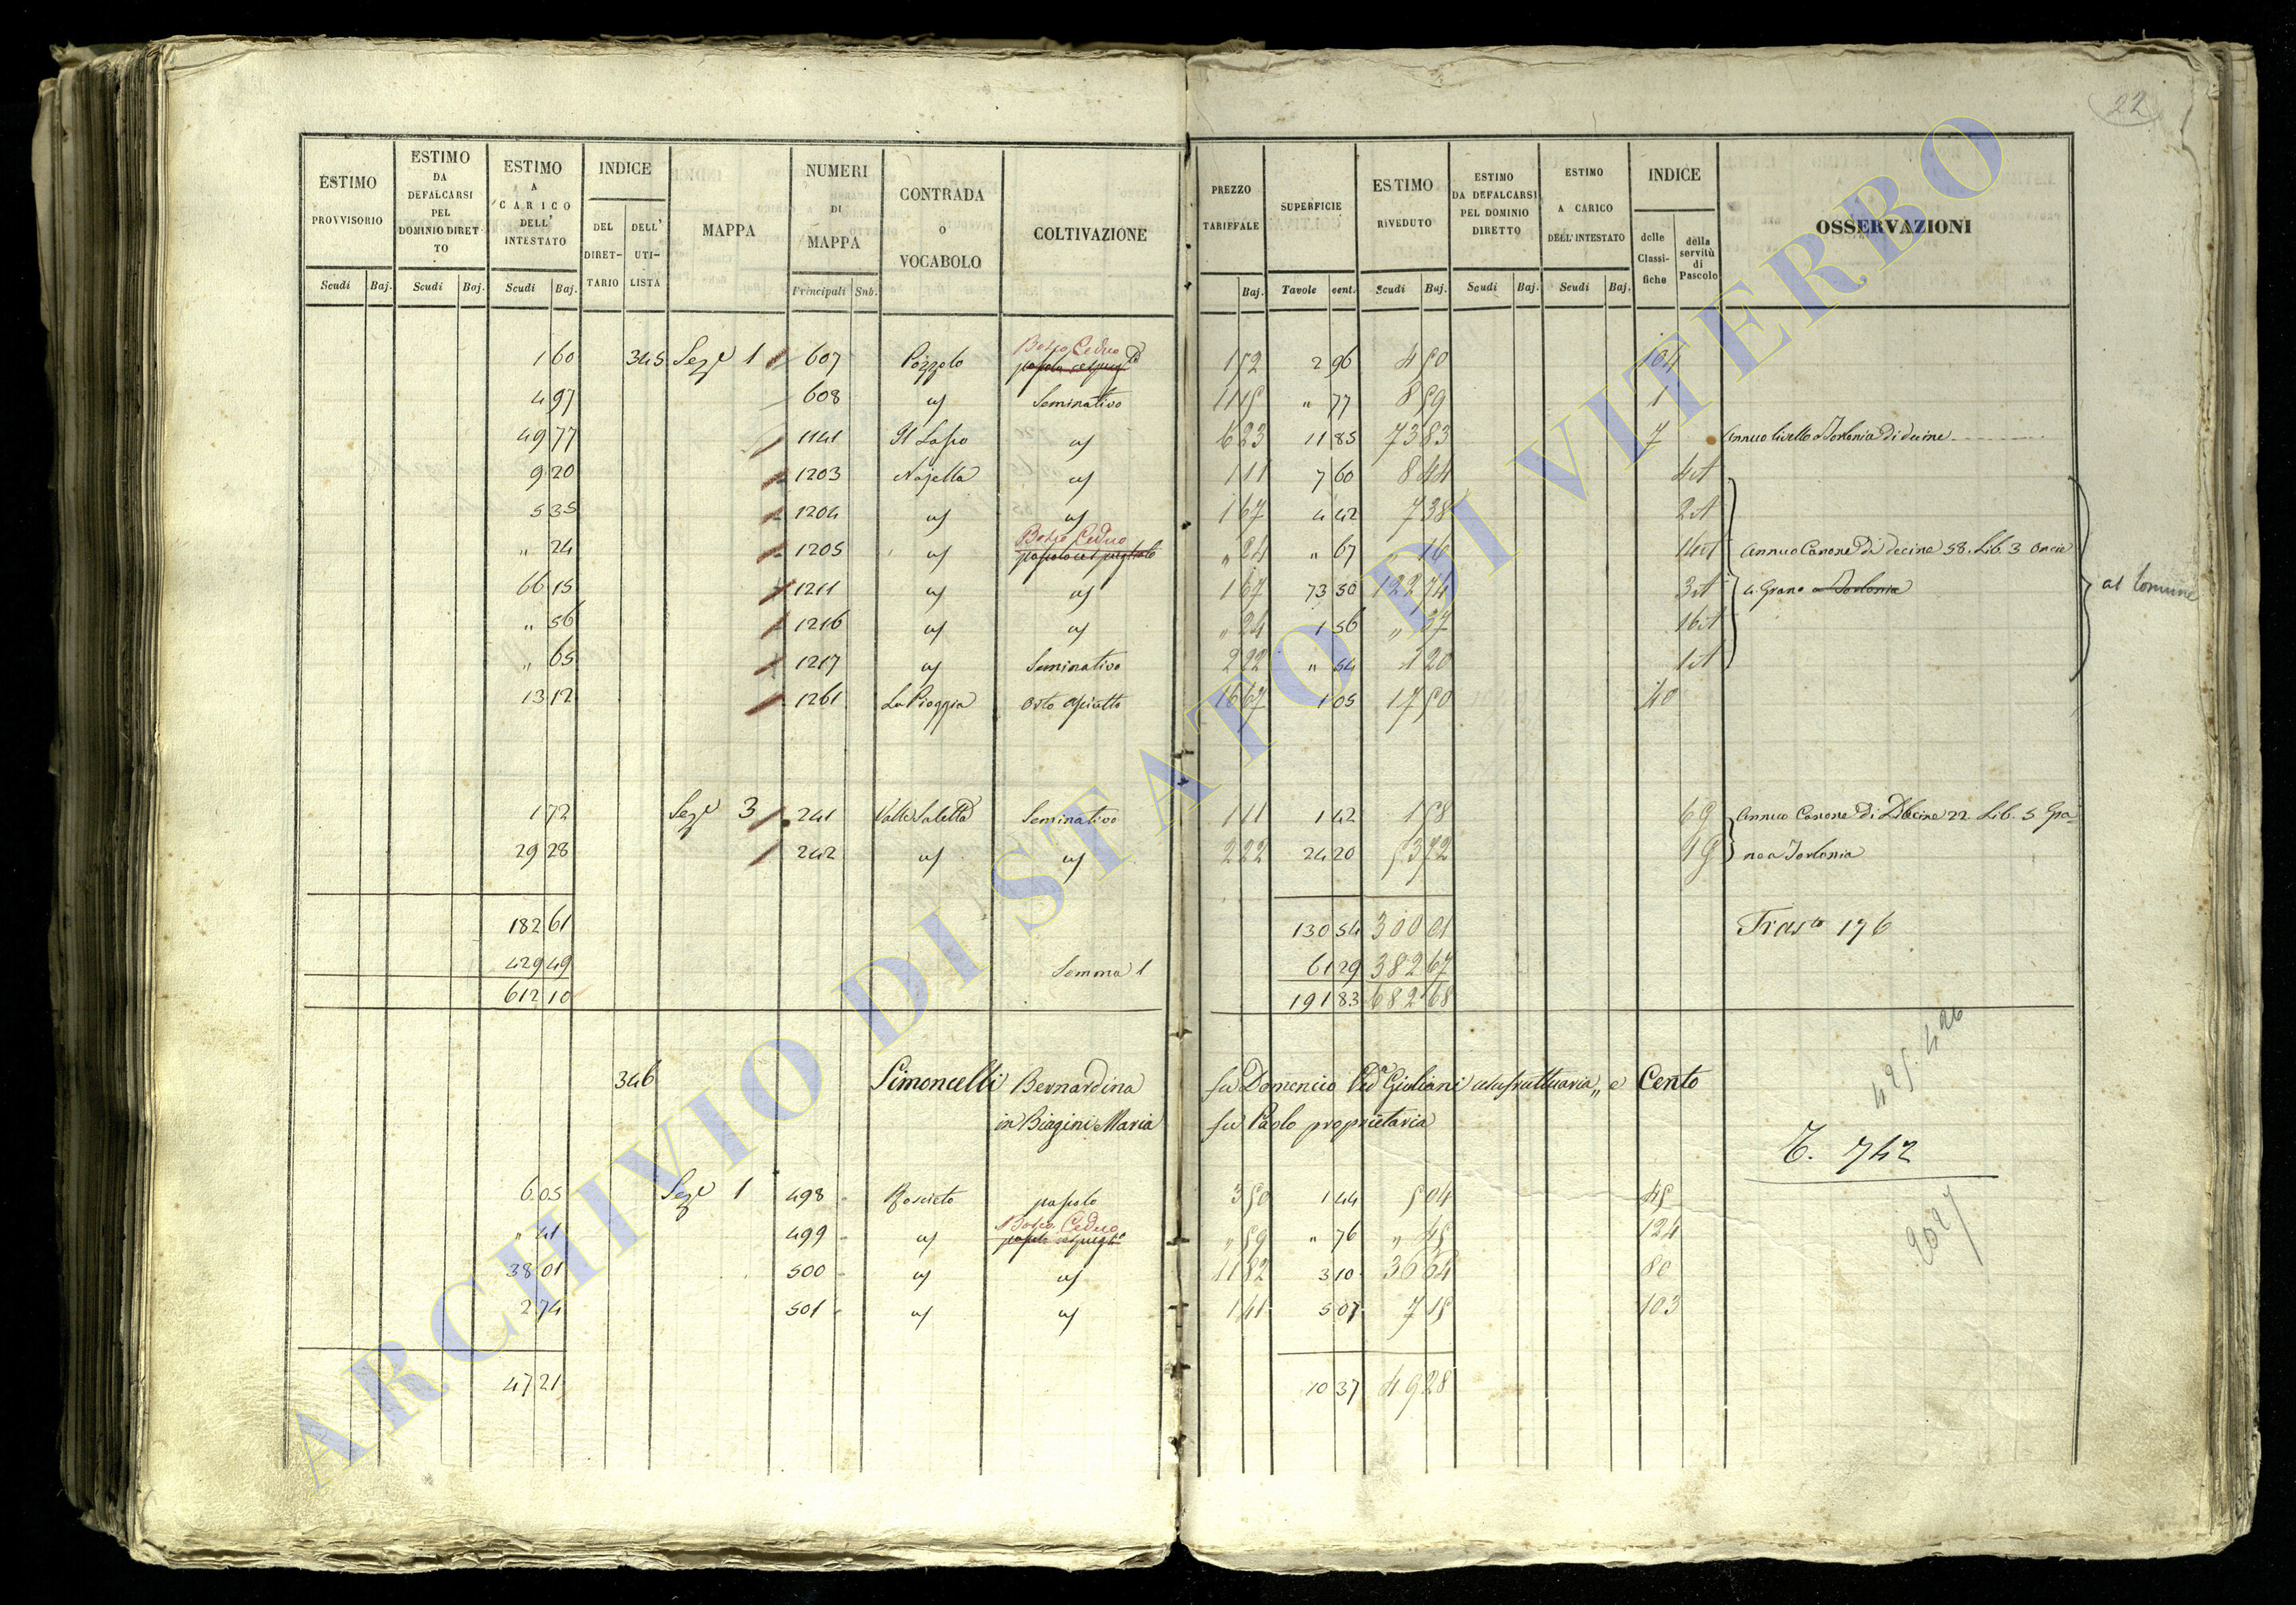 22
ESTIMO PROVVISORIO | ESTIMO DA DEFALCARSI PEL DOMINIO DIRETTO | ESTIMO A CARICO DELL' INTESTATO | INDICE DEL DIRETTARIO | DELL' UTILISTA | MAPPA | NUMERI DI MAPPA | CONTRADA O VOCABOLO | COLTIVAZIONE | PREZZO TARIFFALE | SUPERFICIE | ESTIMO RIVEDUTO | ESTIMO DA DEFALCARSI PEL DOMINIO DIRETTO | ESTIMO A CARICO DELL' INTESTATO | INDICE delle Classifiche | della servitù di Pascolo | OSSERVAZIONI
Scudi | Baj. | Scudi | Baj. | Scudi | Baj. | Principali | Sub. | Baj. | Tavole | cent. | Scudi | Baj. | Scudi | Baj. | Scudi | Baj.
1 60 | 345 | Seze 1 | 607 | Pozzolo | Bosco Ceduo | 1 52 | 2 96 | 4 50 | 104
4 97 | 608 | " | Seminativo | 11 15 | " 77 | 8 59 | 1
49 77 | 1141 | Il Lasco | " | 6 23 | 11 85 | 73 83 | 7 | Annuo livello a Torlonia di decine
9 20 | 1203 | Najella | " | 1 11 | 7 60 | 8 44 | 4
5 35 | 1204 | " | " | 1 67 | 4 42 | 7 38 | 2
" 24 | 1205 | " | Bosco Ceduo | " 24 | " 67 | " 16 | 16 | Annuo Canone di decine 58. Lib. 3 Oncie
66 15 | 1211 | " | " | 1 67 | 73 50 | 122 74 | 3 | 4. Grano a Torlonia | al Comune
" 56 | 1216 | " | " | " 24 | 1 56 | " 37 | 16
" 65 | 1217 | " | Seminativo | 2 22 | " 54 | 1 20 | 1
13 12 | 1261 | La Pioggia | Orto asciutto | 16 67 | 1 05 | 17 50 | 40
1 72 | Seze 3 | 241 | Valle Saletta | Seminativo | 1 11 | 1 42 | 1 58 | 6 | Annuo Canone di Decine 22. Lib. 5 Gra=
29 28 | 242 | " | " | 2 22 | 24 20 | 53 72 | 1 | no a Torlonia
182 61 | 130 54 | 300 01 | Trasto 176
429 49 | Somma 1 | 61 29 | 382 67
612 10 | 191 83 | 682 68
346 | Simoncelli Bernardina fu Domenico Vedª Giuliani usufruttuaria,, e Cento
in Biagini Maria fu Paolo proprietaria
T. 742
6 05 | Seze 1 | 498 | Roscieto | pascolo | 3 50 | 1 44 | 5 04 | 45
" 41 | 499 | " | Bosco Ceduo | " 59 | " 76 | " 45 | 124
38 01 | 500 | " | " | 11 82 | 3 10 | 36 64 | 80
2 74 | 501 | " | " | 1 41 | 5 07 | 7 15 | 103
47 21 | 10 37 | 49 28
ARCHIVIO DI STATO DI VITERBO